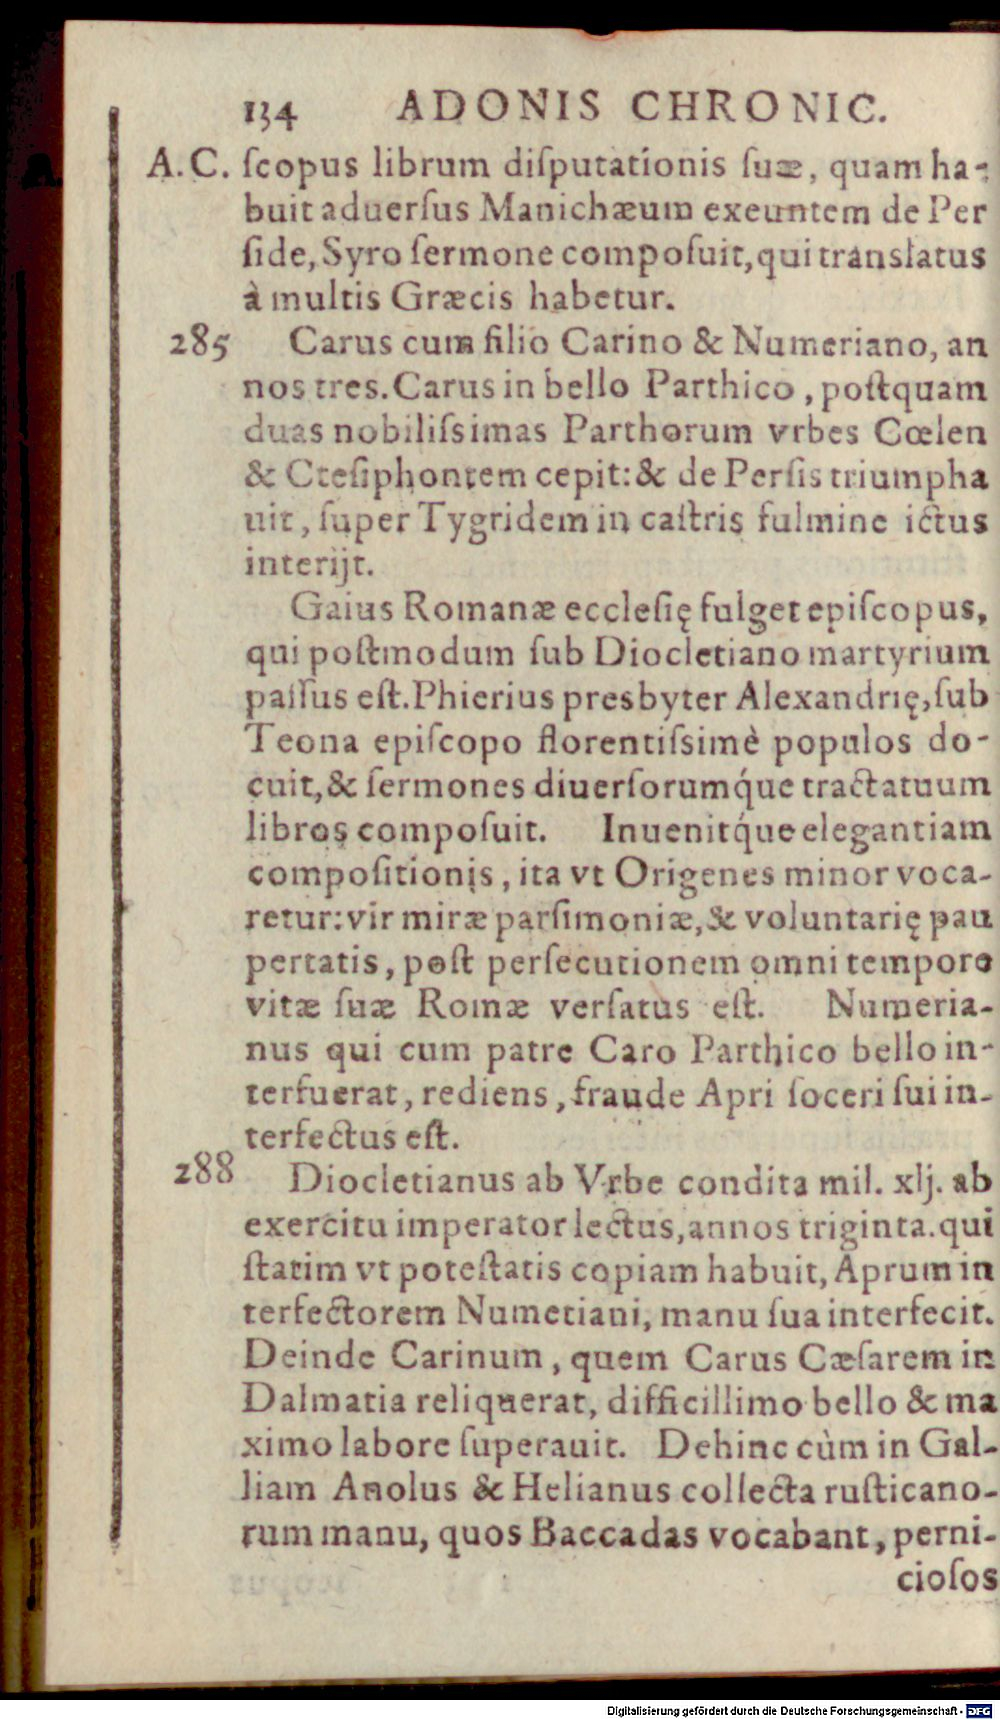 134 ADONIS CHRONIC.
A.C. ſcopus librum diſputationis ſuæ, quam ha-
buit aduerſus Manichæum exeuntem de Per
ſide, Syro ſermone compoſuit, qui translatus
à multis Græcis habetur.
285 Carus cum filio Carino & Numeriano, an
nos tres. Carus in bello Parthico, poſtquam
duas nobiliſsimas Parthorum vrbes Cœlen
& Cteſiphontem cepit: & de Perſis triumpha
uit, ſuper Tygridem in caſtris fulmine ictus
interijt.
Gaius Romanæ eccleſię fulget epiſcopus,
qui poſtmodum ſub Diocletiano martyrium
paſſus eſt. Phierius presbyter Alexandrię, ſub
Teona epiſcopo florentiſsimè populos do-
cuit, & ſermones diuerſorumq́ue tractatuum
libros compoſuit. Inuenitq́ue elegantiam
compoſitionis, ita vt Origenes minor voca-
retur: vir miræ parſimoniæ, & voluntarię pau
pertatis, poſt perſecutionem omni tempore
vitæ ſuæ Romæ verſatus eſt. Numeria-
nus qui cum patre Caro Parthico bello in-
terfuerat, rediens, fraude Apri ſoceri ſui in-
terfectus eſt.
288 Diocletianus ab Vrbe condita mil. xlj. ab
exercitu imperator lectus, annos triginta. qui
ſtatim vt poteſtatis copiam habuit, Aprum in
terfectorem Numetiani, manu ſua interfecit.
Deinde Carinum, quem Carus Cæſarem in
Dalmatia reliquerat, difficillimo bello & ma
ximo labore ſuperauit. Dehinc cùm in Gal-
liam Anolus & Helianus collecta ruſticano-
rum manu, quos Baccadas vocabant, perni-
cioſos
Digitalisierung gefördert durch die Deutsche Forschungsgemeinschaft - DFG